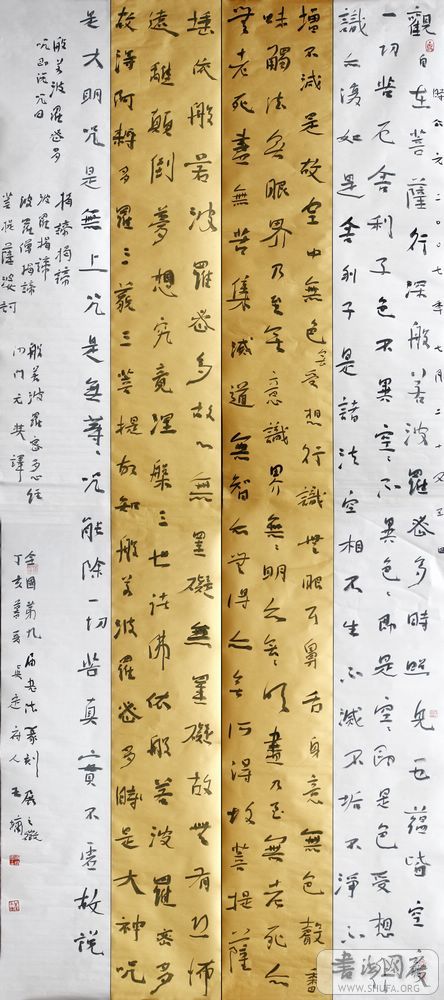 觀自在菩薩行深般若波羅密多時照見五蘊皆空度
一切苦厄舍利子色不異空々不異色々即是空々即是色受想
識亦復如是舍利子是諸法空相不生不滅不垢不淨不
增不減是故空中無色無受想行識無眼耳鼻舌身意無色聲香
味觸法無眼界乃至無意識界無々明亦無々明盡乃至無老死亦
無老死盡無苦集滅道無智亦無得以無所得故菩提薩
埵依般若波羅密多故心無罣礙無罣礙故無有恐怖
遠離顛倒夢想究竟涅槃三世諸佛依般若波羅密多
故得阿耨多羅三藐三菩提故知般若波羅密多時是大神咒
是大明咒是無上咒是無等々咒能除一切苦真實不虛故說
般若波羅密多
咒即說咒曰
揭諦揭諦
波羅揭諦
波羅僧揭諦
菩提薩婆訶
般若波羅密多心經
沙門玄奘譯
全國第九屆書法篆刻展之徵
WWW.SHUFA.ORG